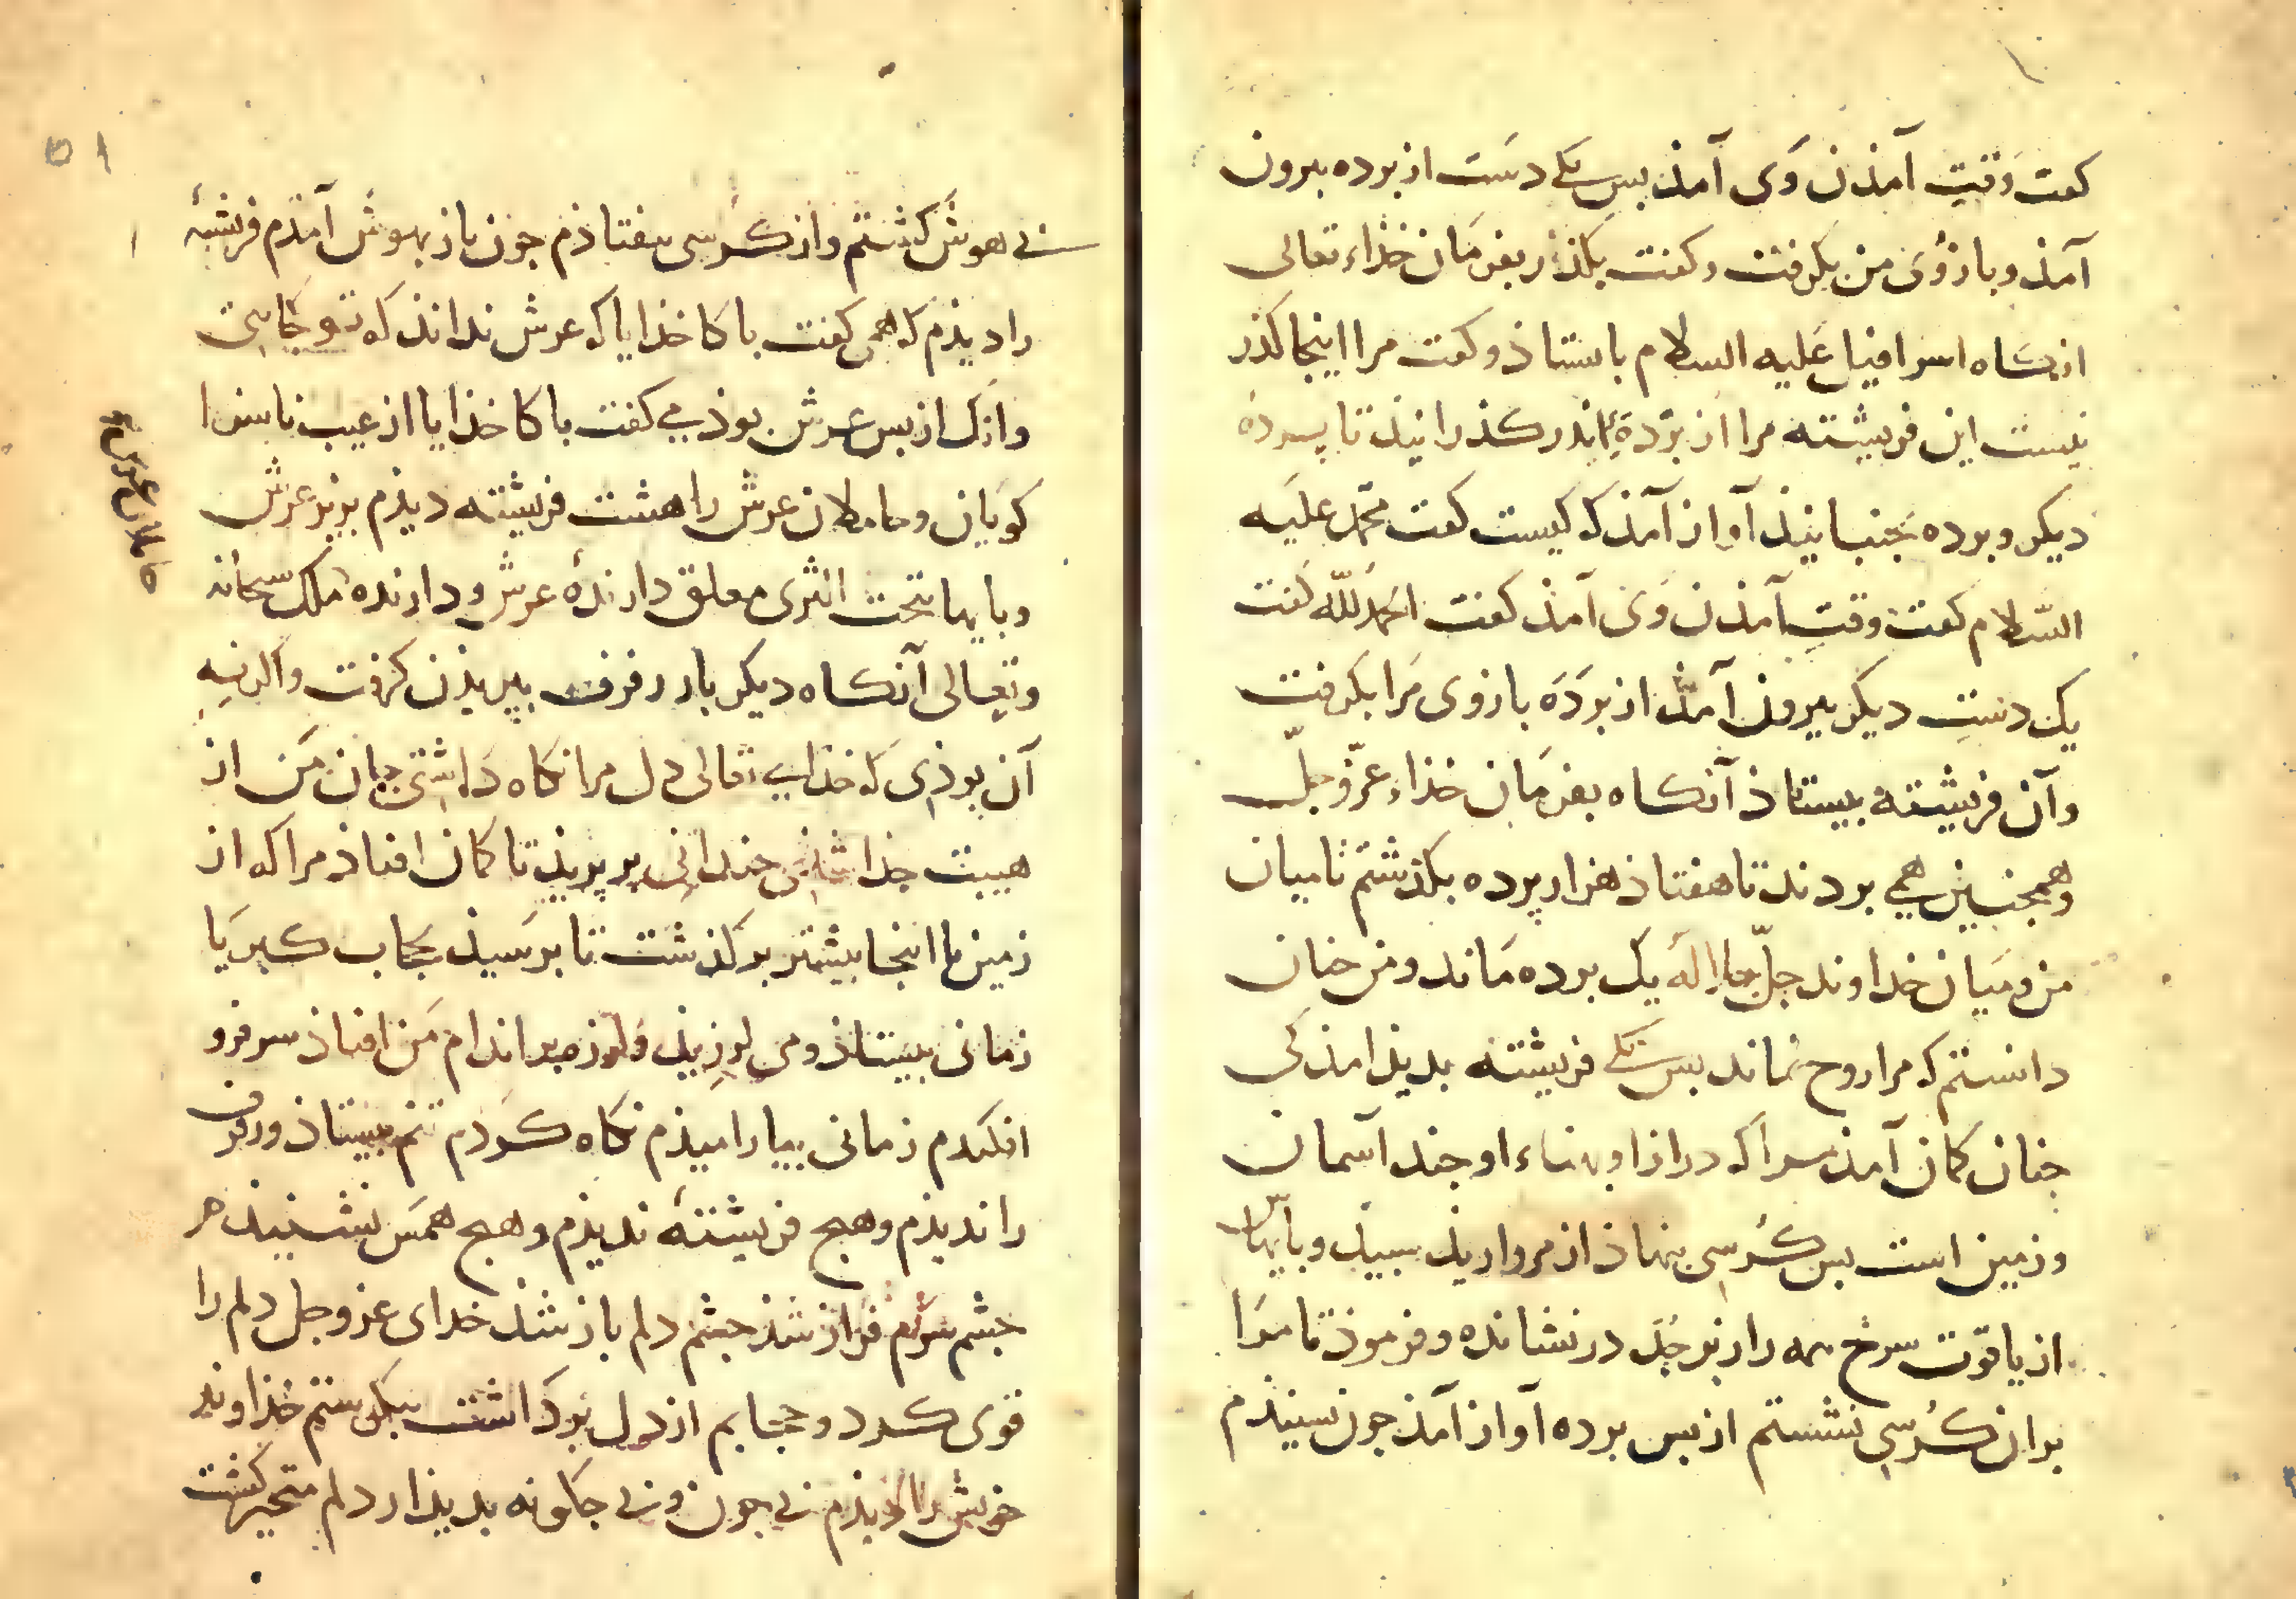 کفت وَقتِ آمذن وَی آمذ بس یکی دست از برده بیرون
آمذ و بازوُی من بکرفت و کفت بکذر بفرمَان خذاء تعالی
انکاه اسرافیل عَلیه السلام باستاذ و کفت مرا اینجا کذر
نیست این فریشته مرا از بَردَهٔ اندر کذرانیذ تا پردهٔ
دیکر و برده بجنبانیذ آواز آمذ که کیست کفت محمّد علیَه
السّلام کفت وقتِ آمذن وَی آمذ کفت الحمدُ للّه کفت
یک دستِ دیکر بیرون آمذ از بردَه بازوی مَرا بکرفت
وآن فریشته بیستاذ آنکاه بفرمَان خذاء عزّ و جلّ
و همجنین همی بردند تا هفتاذ هزار پرده بکذشتم تا میان
من و میَان خداوند جلّ جلاله یک برده مَاند و من جنان
دانستم که مرا روح نماند بس یکی فریشته بدیذ امذ کی
جنان کمان آمذ مرا که درازا و بهناء او جند آسمان
و زمین است بس کُرسی بنهاذ از مرواریذ سبیذ و بایهاش
از یاقوت سرخ همه را زبرجَد در نشانده و فرموذ تا مرَا
بران کُرسی نشستم از بس برده آواز آمذ جون شنیذم
بی هوش کشتم و از کُرسی بیفتاذم جون باز بهوش آمَذم فریشتهٔ
را دیذم که همی کفت باکا خذایا که عرش نداند که تو کجایی
و انک از بس عرش بوذ می کفت باکا خذایا از عیب ناسزا
کویان و حاملان عرش را هشت فریشته دیذم بزیر عرش
و بایها بتحت الثری معلق دارندهٔ عرش و دارنده ملک سبحانه
و تعالی آنکاه دیکر بار رفرف ببریذن کرفت و اکر نه
آن بوذی که خذای تعالی دل مرا نکاه دَاشتی جان من از
هیبت جذا شذی جندانی بر پریذ تا کمان افتاذ مرا که از
زمین تا اینجا بیشتر برکذشت تا برسیذ بحجاب کبریَا
زمانی بیستاذ و می لرزیذ و لرزه بر اندام من افتاذ سر فرو
افکندم زمانی بیارامیذم نکاه کردم تنم بیستاذ و رفرف
را ندیذم و هیج فریشتهٔ ندیذم و هیج همسَ نشنیذم
جشم سرم فراز شذ جشم دلم باز شذ خدای عز و جل دلم را
قوی کرد و حجابم از دل برداشت بنکرستم خذاوند
خویش را دیذم بی جون و بی جکونه بدیذار دلم متحیر کشت
حاملان عرش
۵۱